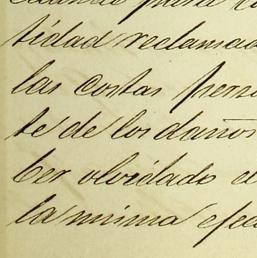 para
tidad reclamad
las costas pers
te de los daños
ber olvidado e
la misma efec